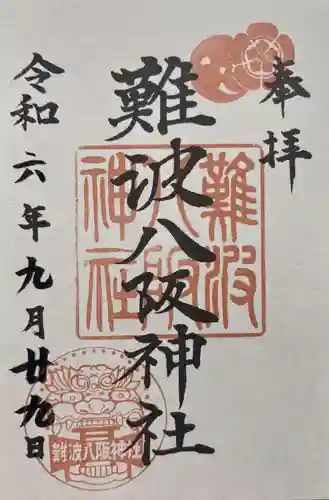 奉拝
難波八阪神社
令和六年九月廿九日
難波八阪神社
難波八阪神社